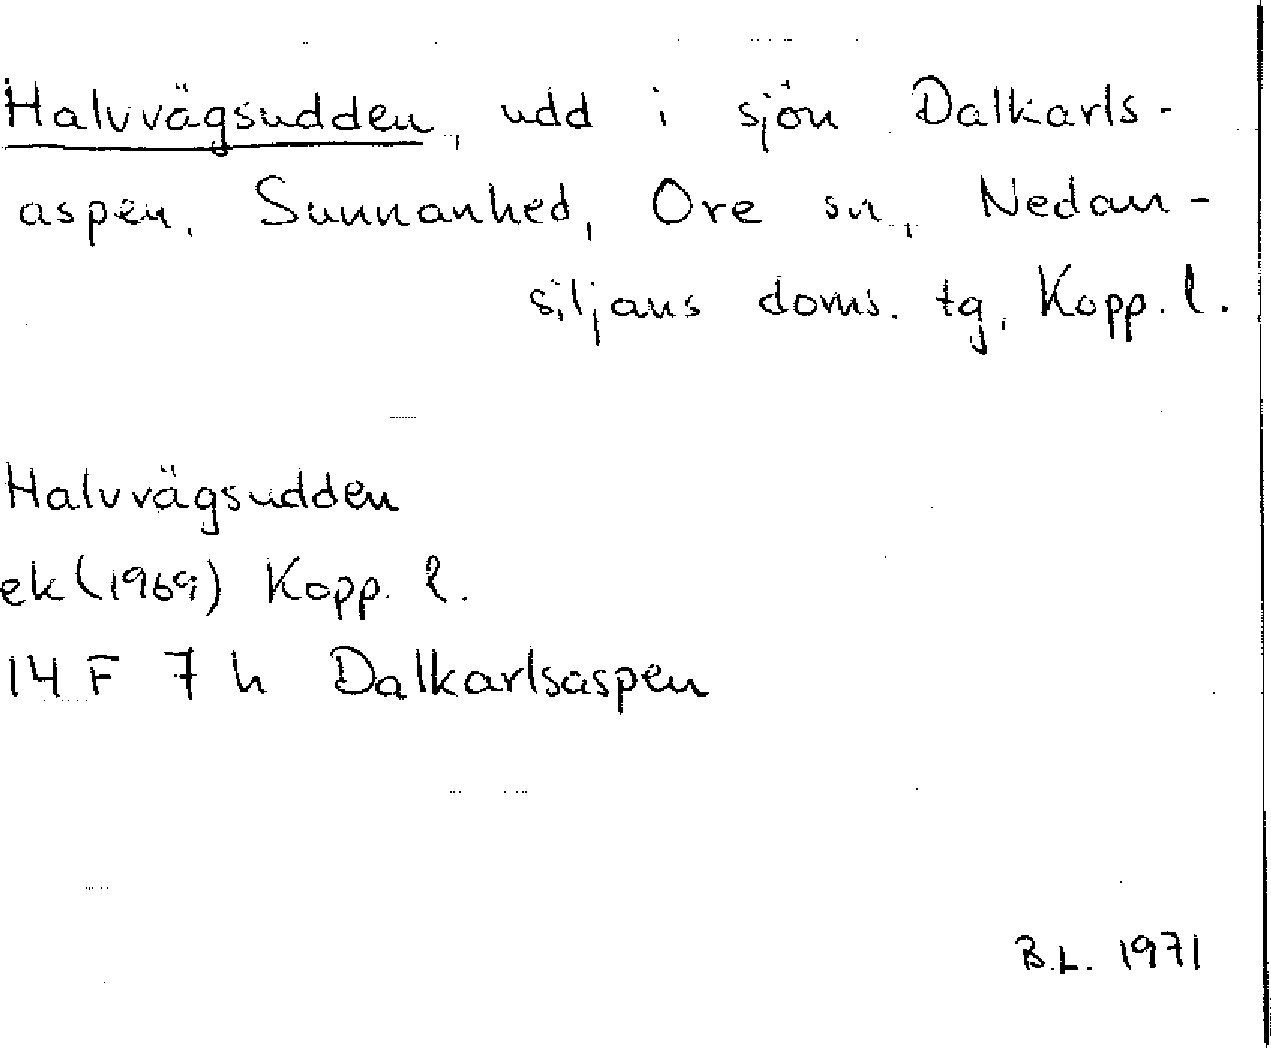 Halvvägsudden, udd i sjön Dalkarls-
aspen, Sunnanhed, Ore sn, Nedan-
siljans doms. tg, Kopp. l.
Halvvägsudden
ek (1969) Kopp. l.
14 F 7 h Dalkarlsaspen
B.L. 1971